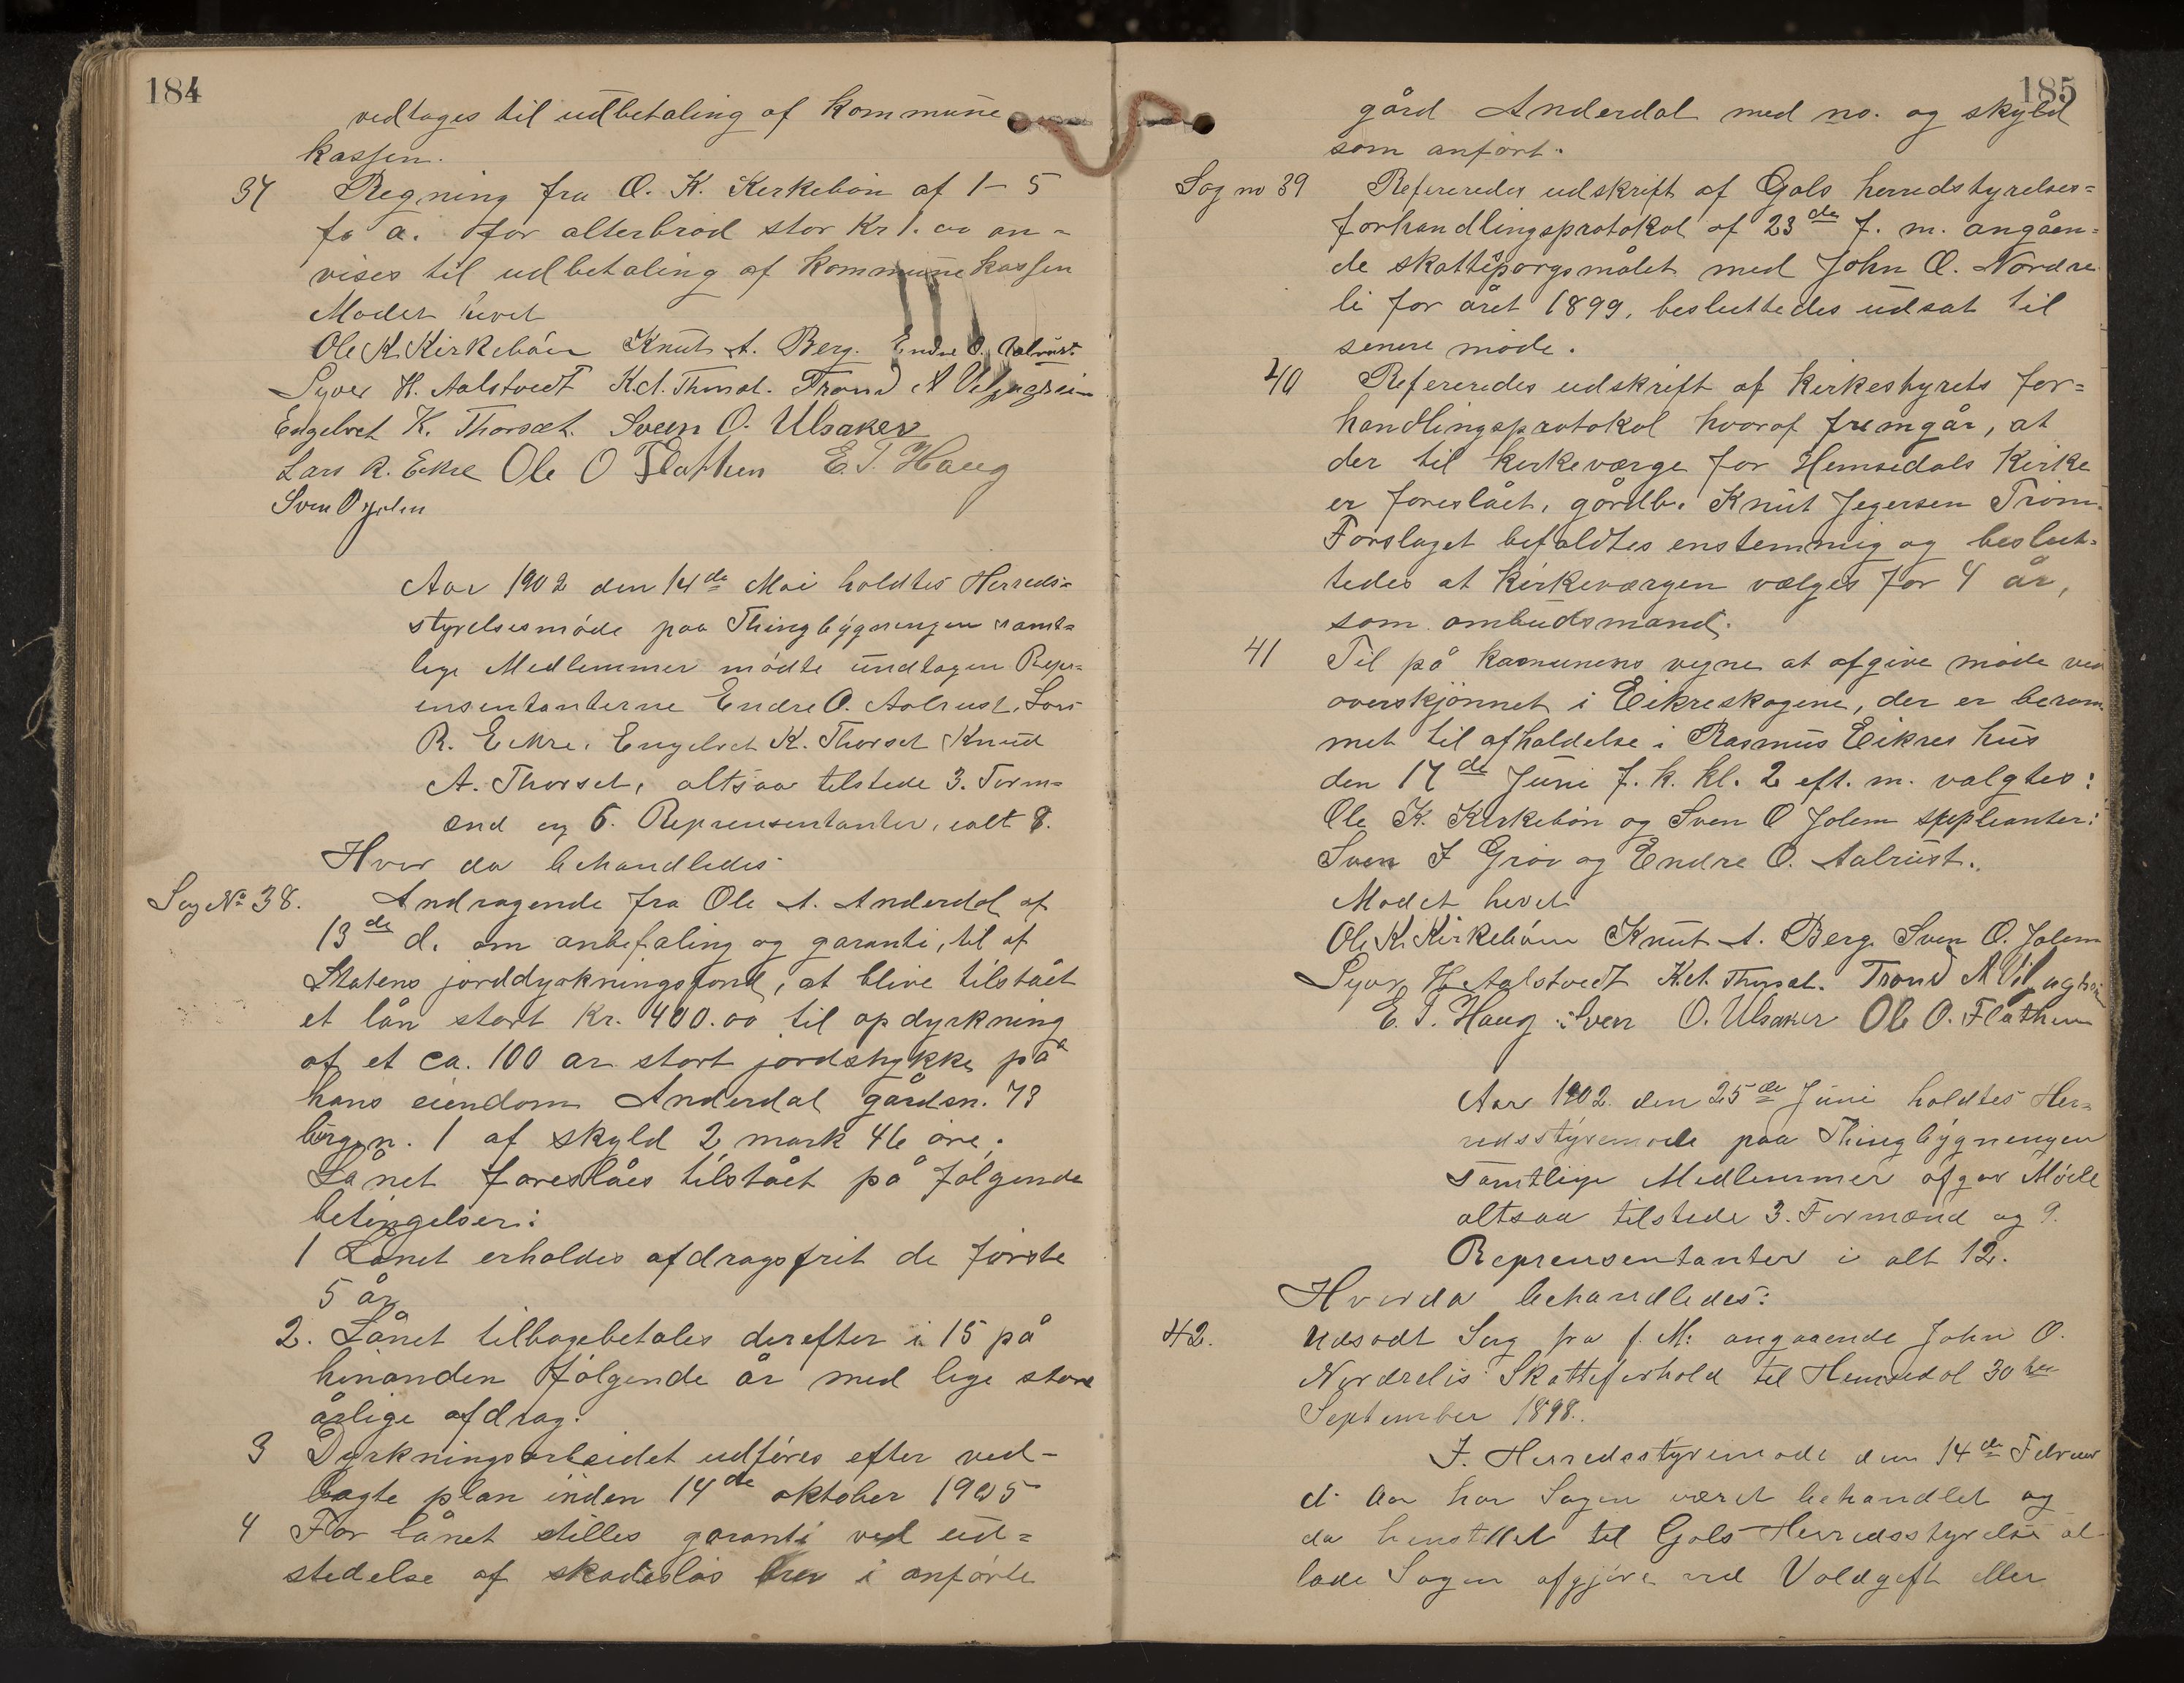 184
vedtages til udbetaling af kommune
kassen.
37 Regning fra O. K. Kirkebön af 1-5
fo a. for alterbrød stor Kr 1.00 an-
vises til udbetaling af kommunekassen
Mødet hevet
Ole K. Kirkebøn Knut A. Berg. Endre O. Aalrust.
Syver H. Aalstvedt K.A. Thorset. Trond A
Engelbret K. Thorset. Sven O. Ulsaker
Lars R. Eikre Ole O Flathen E. T. Haug
Sven O Jolem
Aar 1902 den 14de Mai holdtes Herreds-
styrelsesmøde paa Thingbygningen samt-
lige Medlemmer mødte undtagen Repr-
ensentanterne Endre O. Aalrust, Lars
R. Eikre, Engelbret K. Thorset, Knud
A. Thorset, altsaa tilstede 3. Form-
ænd og 6. Reprensentanter, ialt 8.
Hvor da behandledes
Sag No 38. Andragende fra Ole A. Anderdal af
13de d. om anbefaling og garanti, til af
Statens jorddyrkningsfond, at blive tilstået
et lån stort Kr. 400.00 til opdyrkning
af et ca. 100 ar stort jordstykke på
hans eiendom Anderdal gårdsn. 73
brugsn. 1 af skyld 2 mark 46 øre.
Lånet foreslåes tilstået på følgende
betingelser:
1 Lånet erholdes afdragsfrit de første
5 år
2. Lånet tilbagebetales derefter i 15 på
hinanden følgende år med lige store
årlige afdrag.
3 Dyrkningsarbeidet udføres efter ved-
lagte plan inden 14de oktober 1905
4 For lånet stilles garanti ved ud-
stedelse af skadesløs brev i anførte
185
gård Anderdal med no. og skyld
som anført.
Sag no 39 Refereredes udskrift af Gols herredstyrelses-
forhandlingsprotokol af 23de f. m. angåen-
de skattespørgsmålet med John O. Nordre
li for året 1899, besluttedes udsat til
senere møde.
40 Refereredes udskrift af kirkestyrets for-
handlingsprotokol hvoraf fremgår, at
der til kirkeværge for Hemsedals Kirke
er foreslået, gårdbr. Knut Jegersen Trøim.
Forslaget bifaldtes enstemmig og beslut-
tedes at kirkeværgen vælges for 4 år,
som ombudsmand.
41 Til på komunens vegne at afgive møde ved
overskjønnet i Eikreskogene, der er beram-
met til afholdelse i Rasmus Eikres hus
den 17de Juni f. k. kl. 2 eft. m. valgtes:
Ole K. Kirkebön og Sven O Jolem suppleanter:
Sven J Grøv og Endre O. Aalrust.
Mødet hevet
Ole K. Kirkebøen Knut A. Berg. Sven O. Jolem
Syver H. Aalstvedt K.A. Thorset. Trond A
E. T. Haug Sven O. Ulsaker Ole O. Flathen
Aar 1902. den 25de Juni holdtes Her-
redsstyremøde paa Thingbygningen
samtlige Medlemmer afgav Møde
altsaa tilstede 3. Formænd og 9.
Reprensentanter i alt 12.
Hvorda behandledes:
42. Udsadt Sag fra f. M: angaaende John O.
Nordrelis Skatteforhold til Hemsedal 30te
September 1898.
I. Herredsstyremøde den 14de Februar
d. Aar har Sagen været behandlet og
da henstillet til Gols Herredsstyrelse at
lade Sagen afgjøre ved Voldgift eller